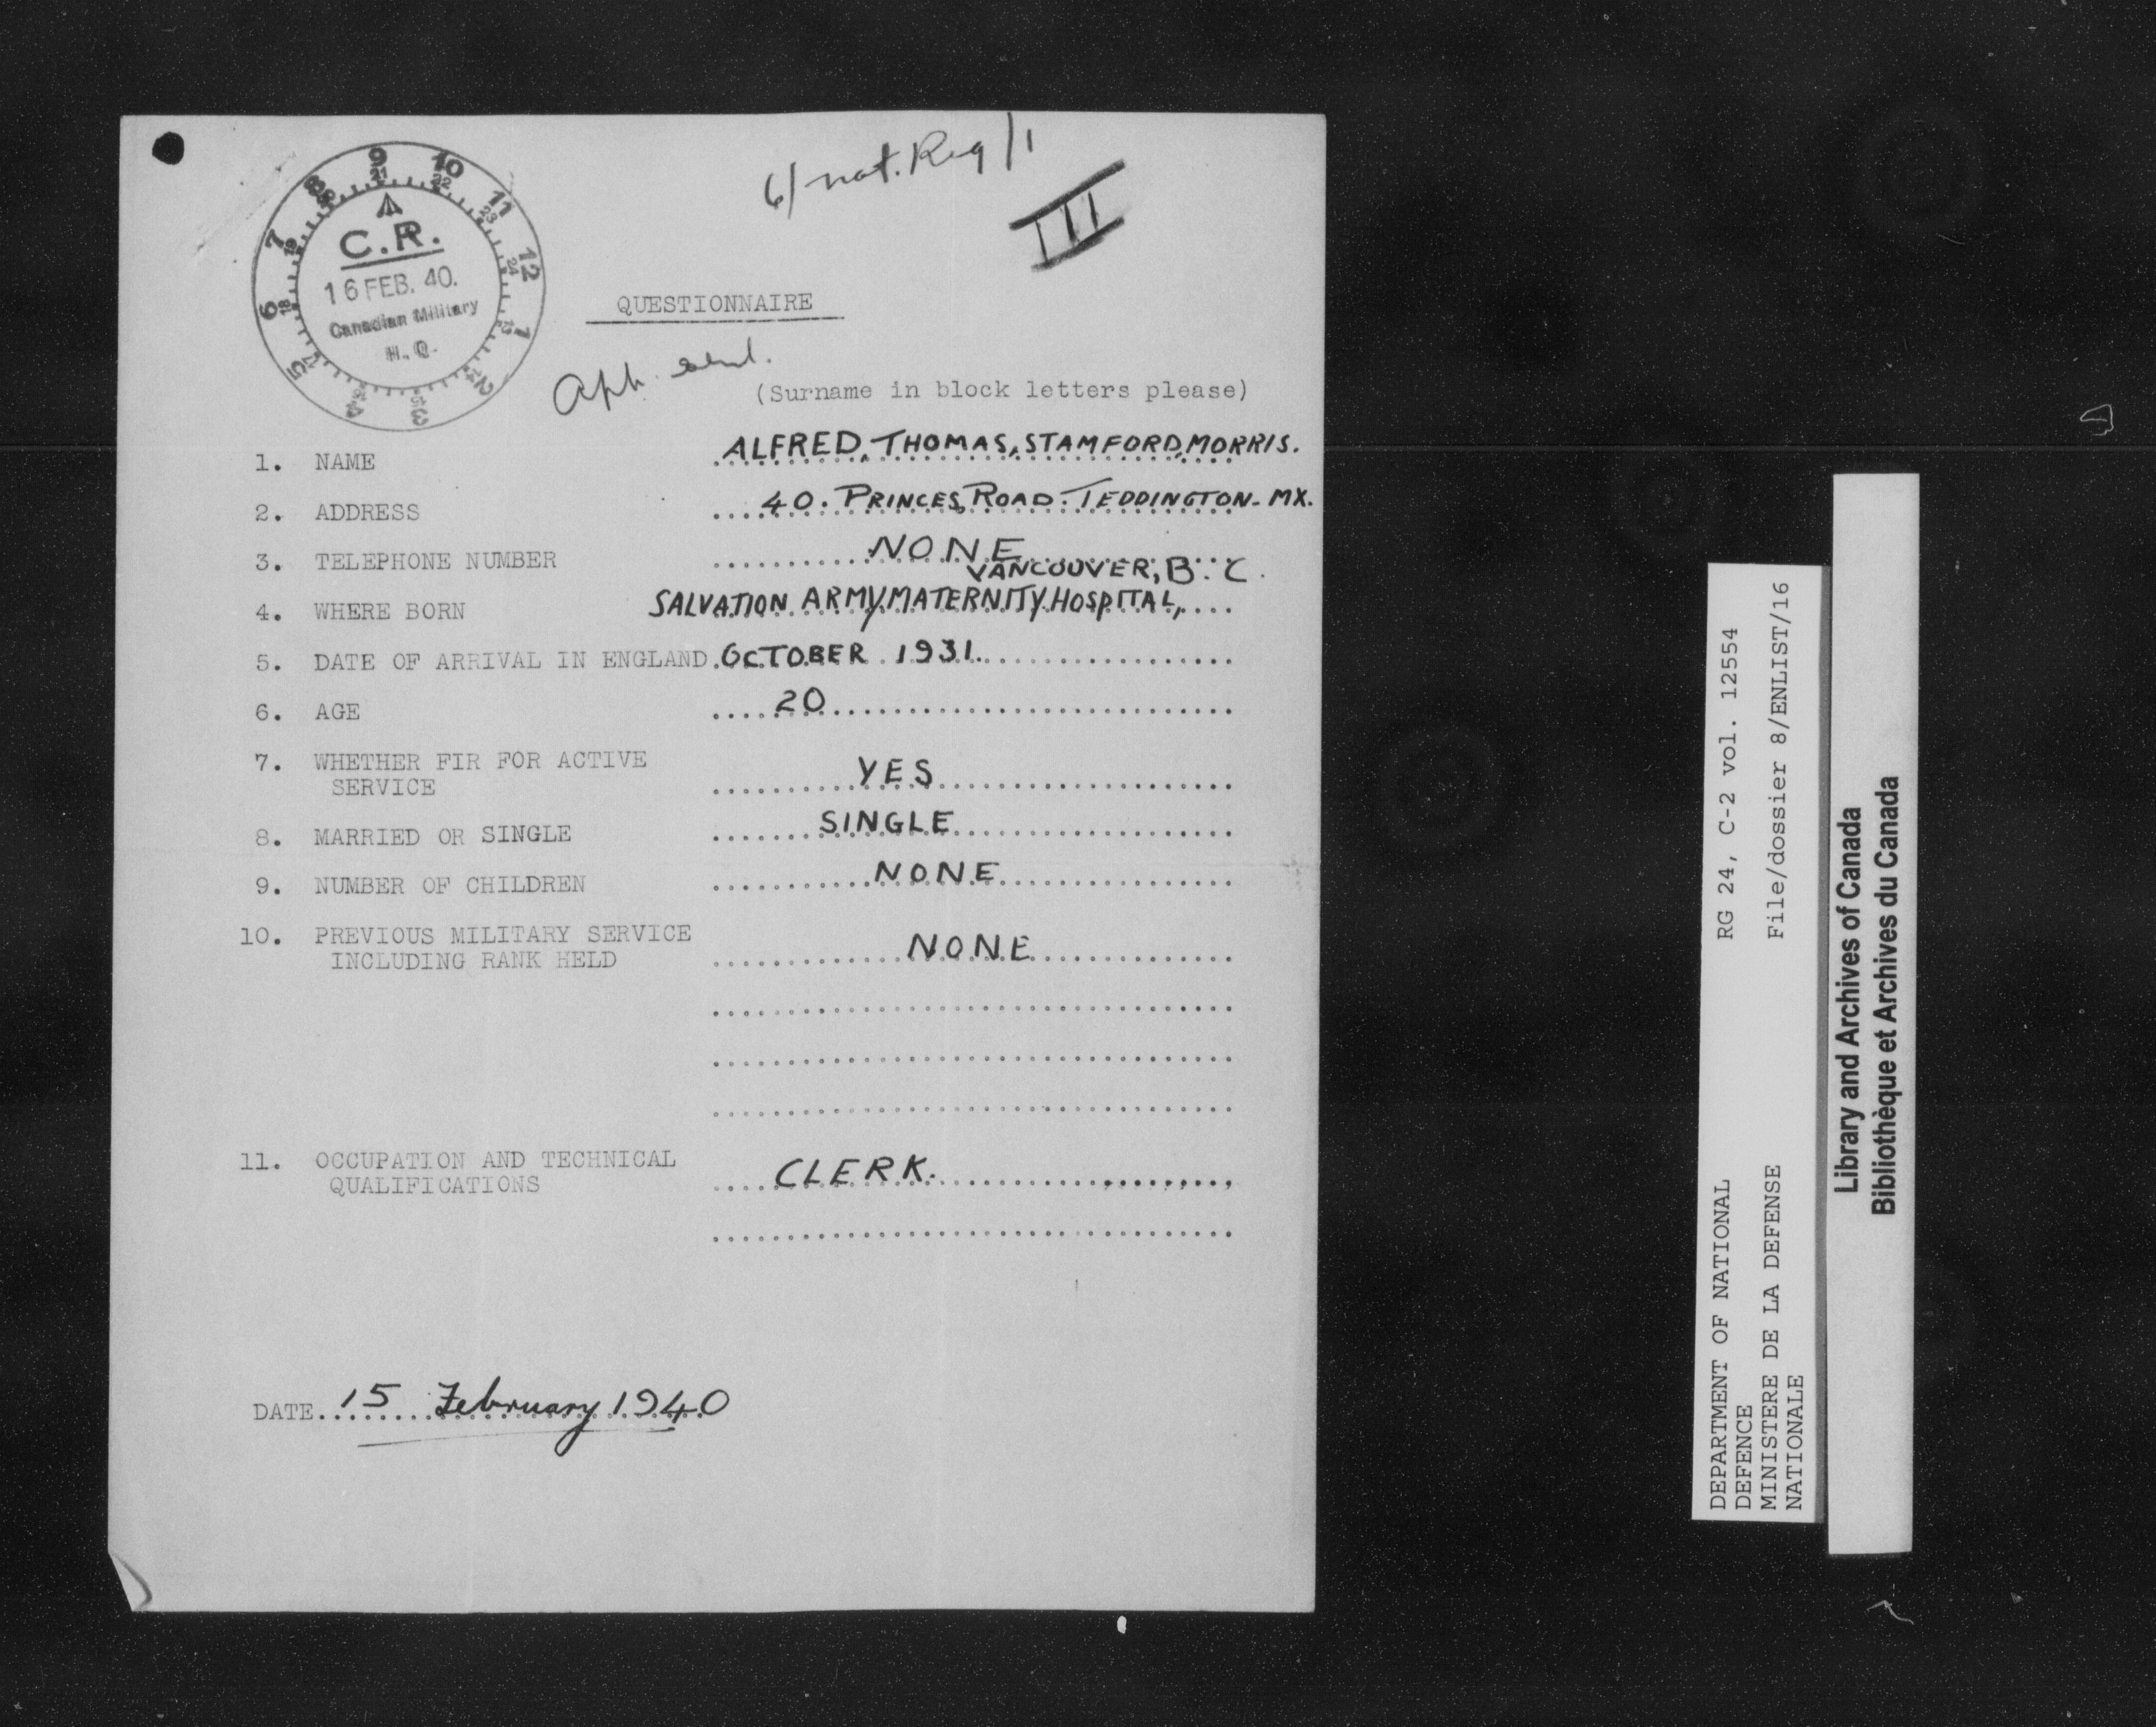 6/ nat. Reg /1
III
9 10 11 12 1 2 3 4 5 6 7 8
21 22 23 24 13 14 15 16 17 18 19 20
C.R.
16 FEB. 40.
Canadian Military
H. Q.
QUESTIONNAIRE
(Surname in block letters please)
1. NAME ALFRED, THOMAS, STAMFORD, MORRIS.
2. ADDRESS 40. PRINCES ROAD. TEDDINGTON - MX.
3. TELEPHONE NUMBER NONE
VANCOUVER, B. C.
4. WHERE BORN SALVATION ARMY MATERNITY HOSPITAL,
5. DATE OF ARRIVAL IN ENGLAND OCTOBER 1931.
6. AGE 20
7. WHETHER FIR FOR ACTIVE
SERVICE YES
8. MARRIED OR SINGLE SINGLE
9. NUMBER OF CHILDREN NONE
10. PREVIOUS MILITARY SERVICE
INCLUDING RANK HELD NONE
11. OCCUPATION AND TECHNICAL
QUALIFICATIONS CLERK.
DATE 15 February 1940
DEPARTMENT OF NATIONAL RG 24, C-2 vol. 12554
DEFENCE
MINISTERE DE LA DEFENSE File/dossier 8/ENLIST/16
NATIONALE
Library and Archives of Canada
Bibliothèque et Archives du Canada